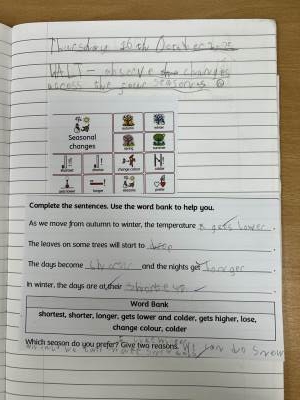 Thursday 16th October
WALT - observe changes
across the four seasons
Seasonal
changes
autumn
winter
spring
summer
shortest
shorter
change colour
colder
gets lower
longer
seasons
prefer
Complete the sentences. Use the word bank to help you.
As we move from autumn to winter, the temperature gets lower.
The leaves on some trees will start to
The days become shorter and the nights get longer.
In winter, the days are at their shortest.
Word Bank
shortest, shorter, longer, gets lower and colder, gets higher, lose,
change colour, colder
Which season do you prefer? Give two reasons.